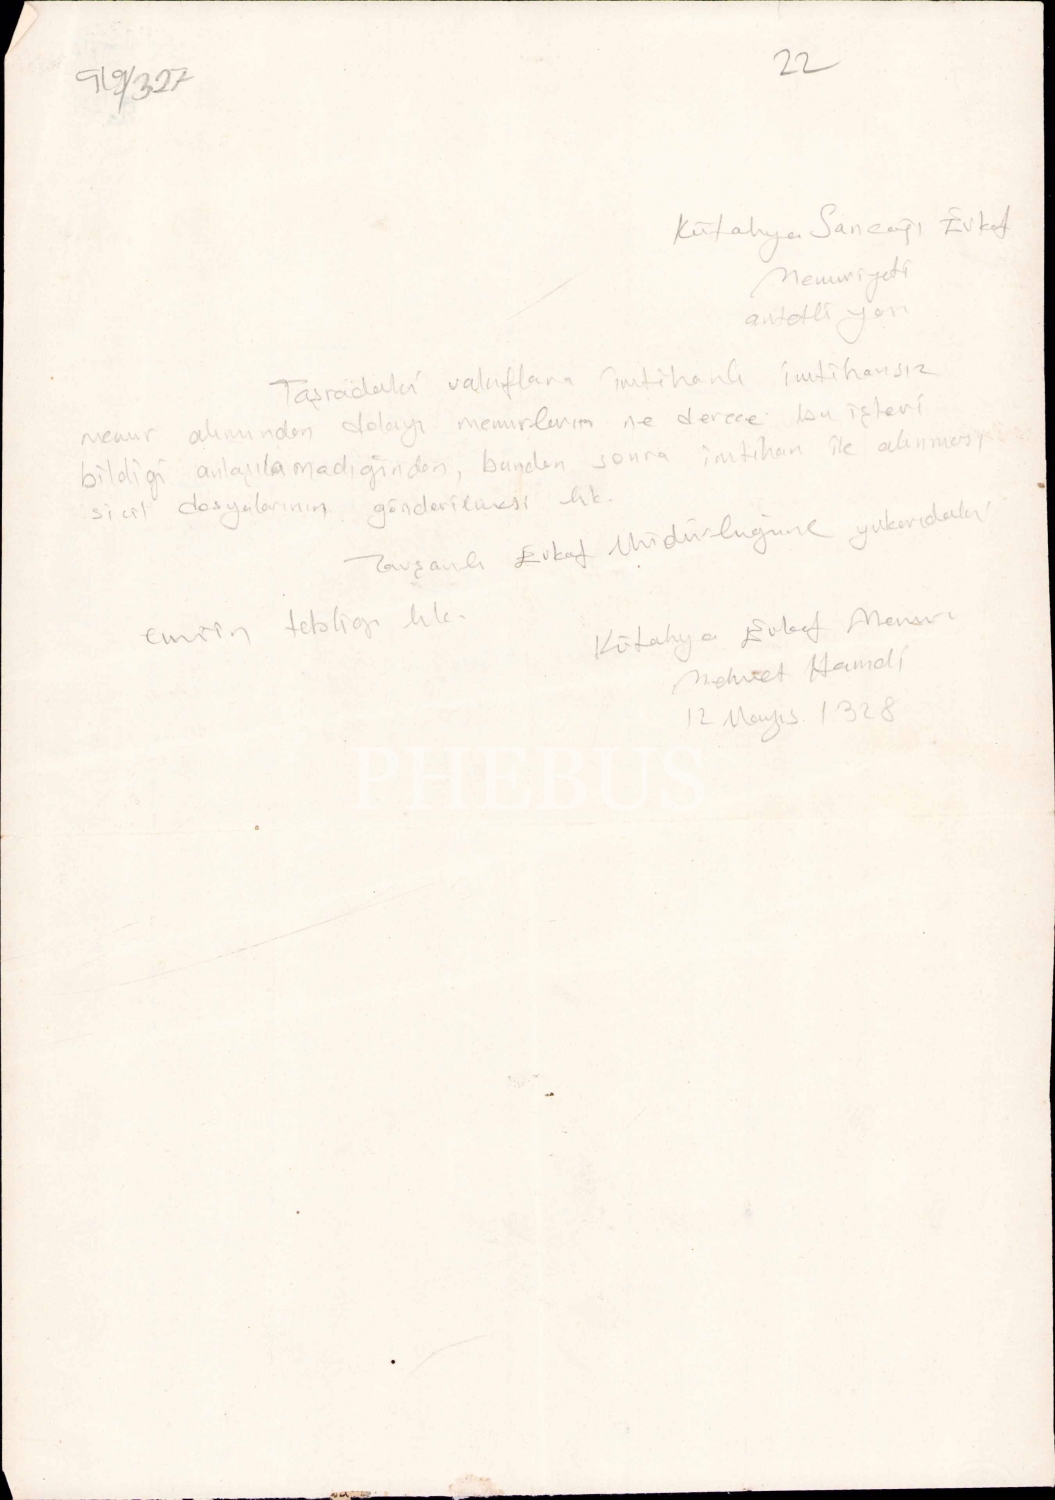 919/327
22
Kütahya Sancağı Evkaf
Memuriyeti
antetli yazı
Taşradaki vakıflara imtihanlı imtihansız
memur alımından dolayı memurların ne derece bu işleri
bildiği anlaşılamadığından, bundan sonra imtihan ile alınması
sicil dosyalarının gönderilmesi hk.
Tavşanlı Evkaf Müdürlüğüne yukarıdaki
emrin tebliği hk.
Kütahya Evkaf Memuru
Mehmet Hamdi
12 Mayıs 1328
PHEBUS